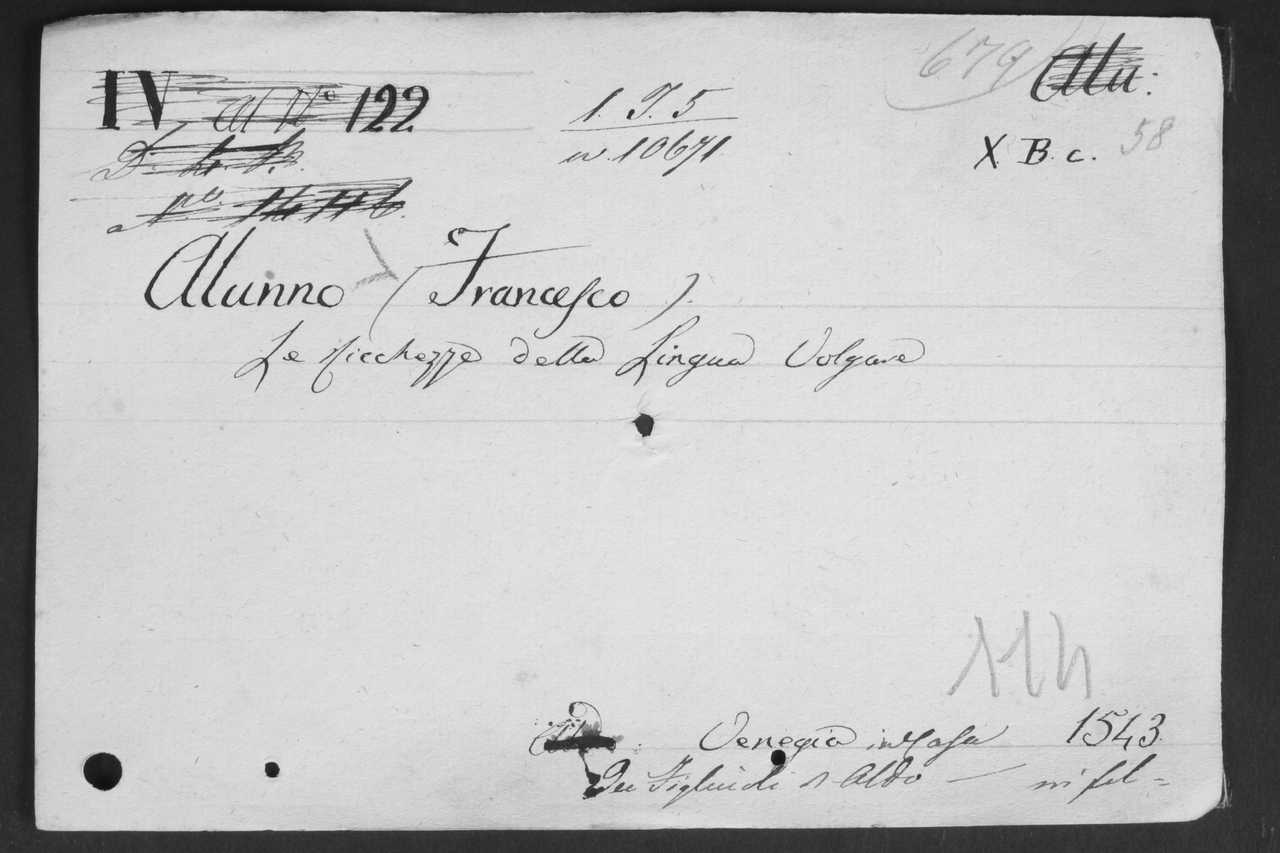 679 Alu:
IV Al Nº 122
1. J. 5
10671
X B. c. 58
D. 4. B.
Nº 14446
Alunno (Francesco).
Le Ricchezze della Lingua Volgare
114
Venegia in Casa 1543
Dei Figliuoli d Aldo — in fol=